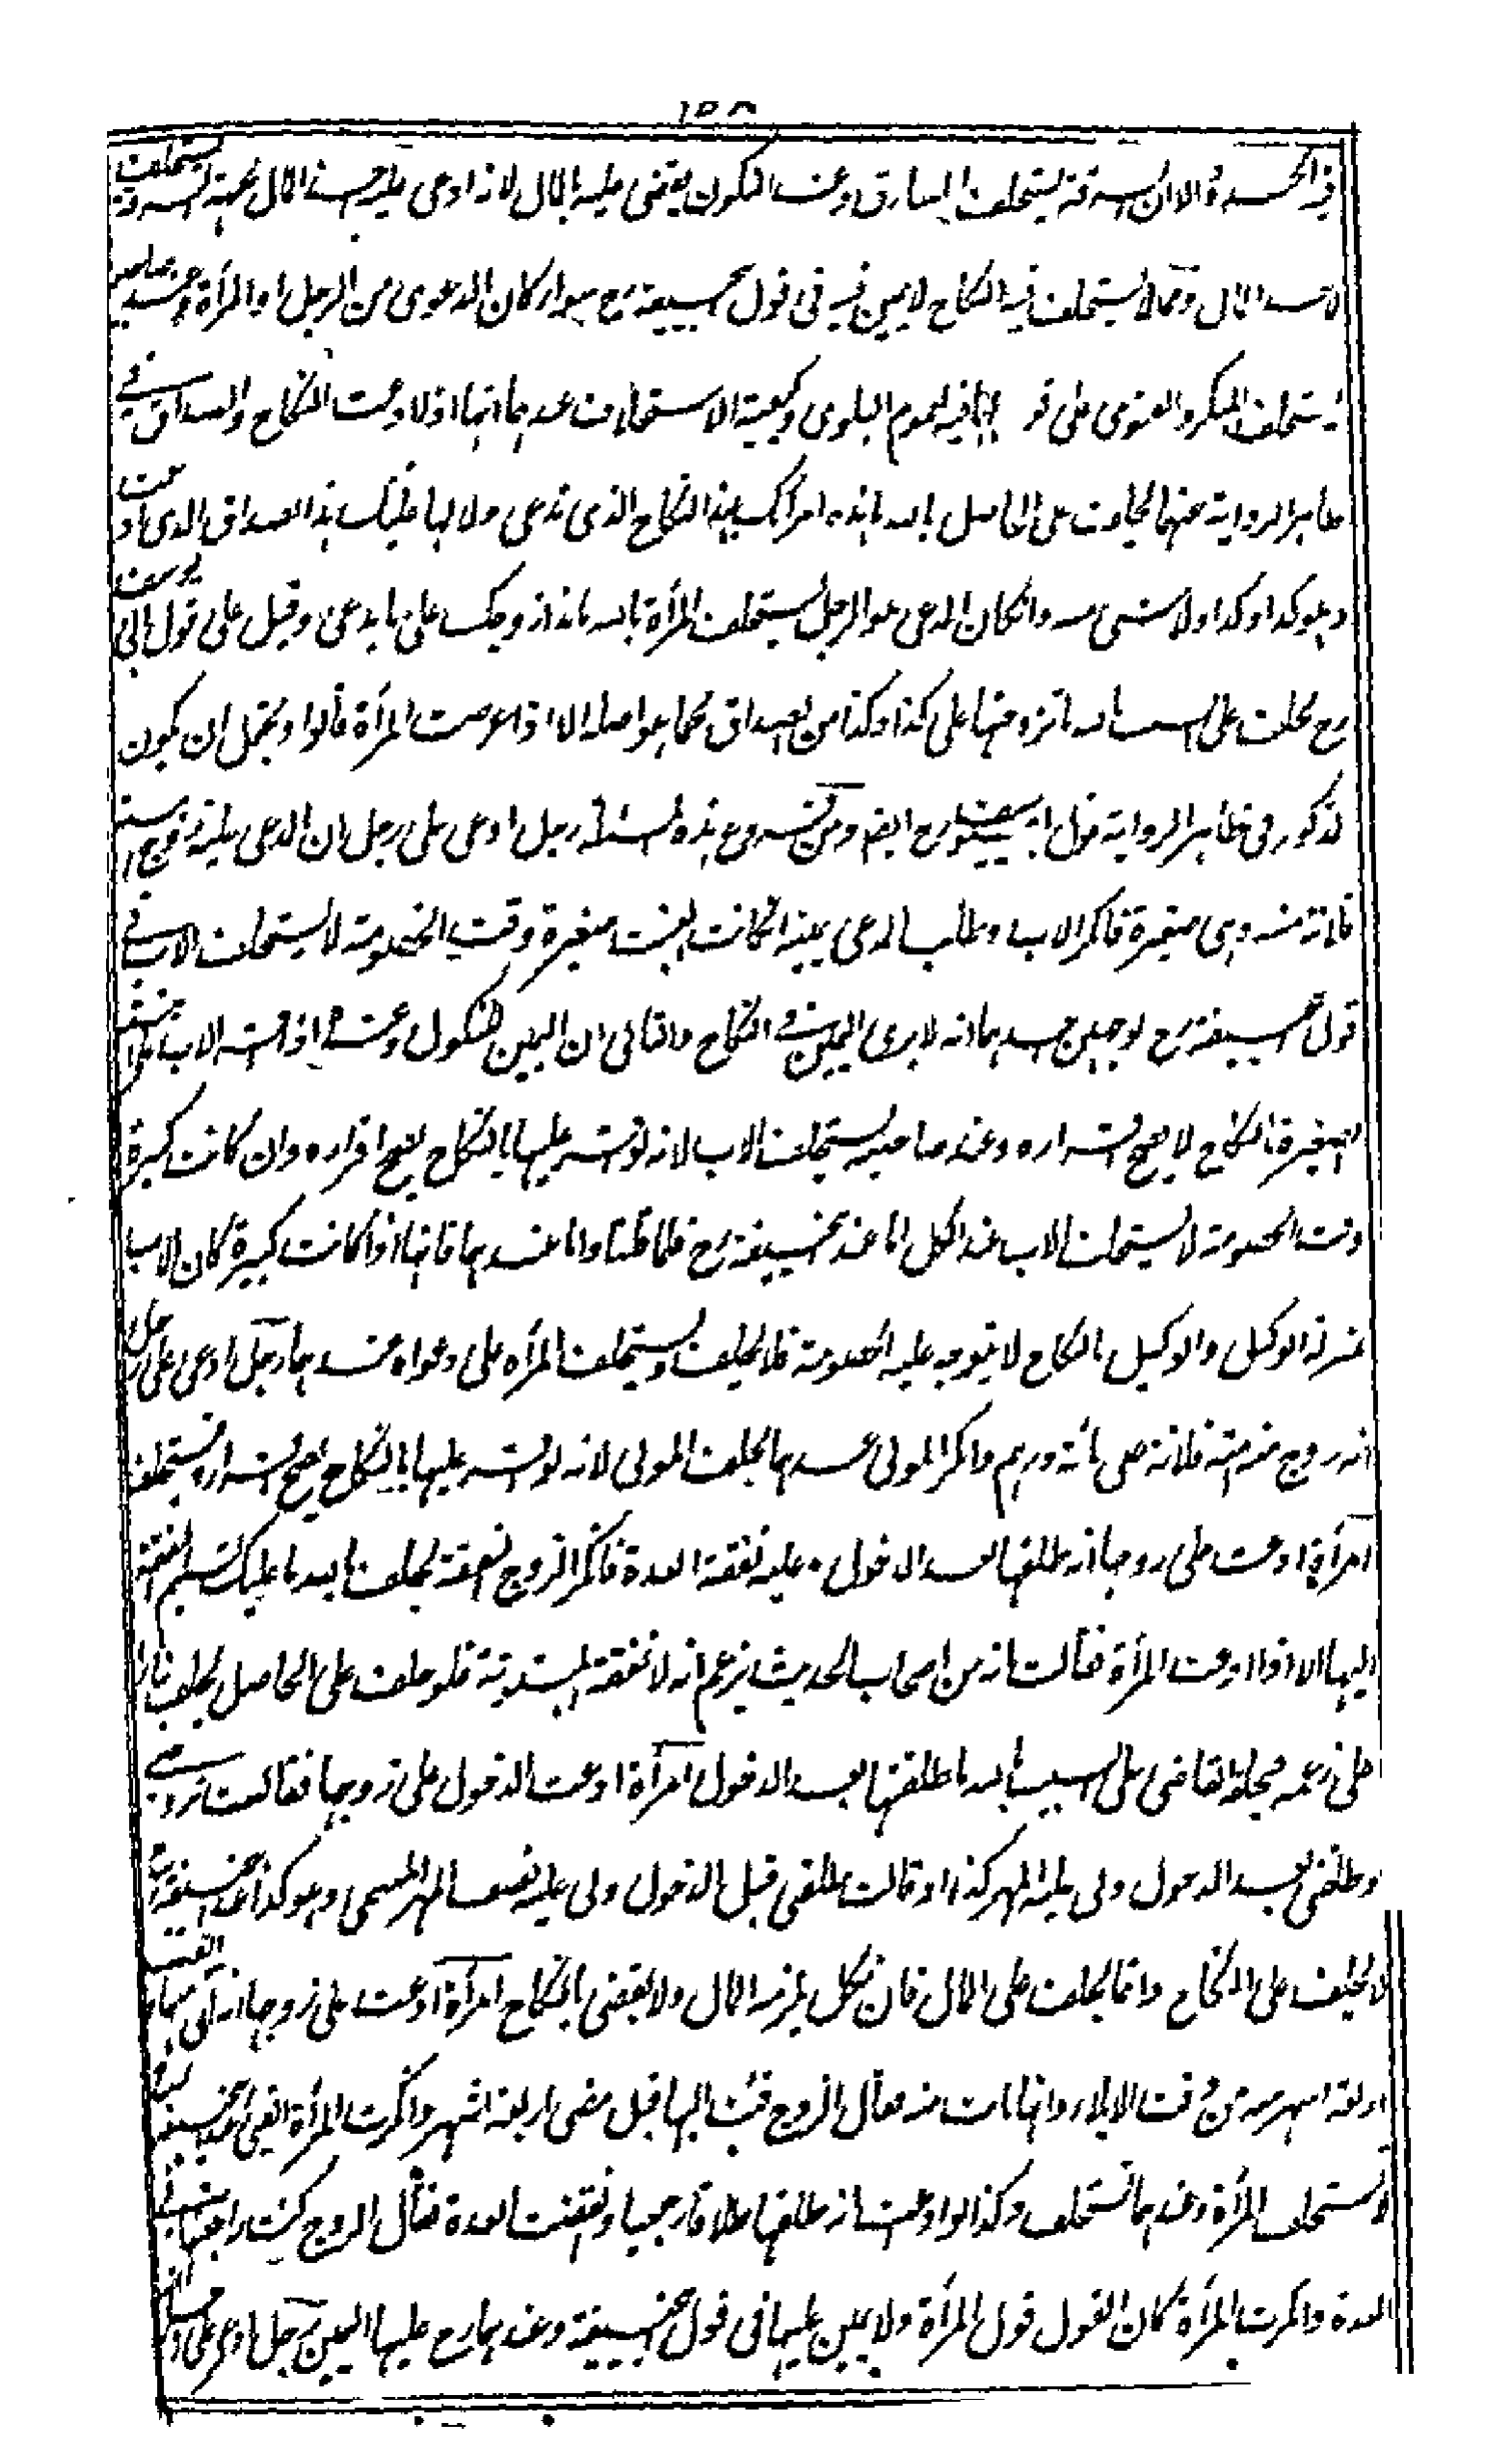 في الحدود الا ان في السرقة يستحلف السارق وعند النكول يقضى عليه بالمال لانه ادعى عليه اخذ المال بجهة السرقة يستحلف
لاخذ المال ومما لا يستحلف فيه النكاح لا يمين فيه في قول ابيحنيفة رح سواء كان الدعوى من الرجل او المرأة وعند صاحبيه
يستحلف المنكر والفتوى على قولهما فيه لعموم البلوى وكيفية الاستحلاف عندهما انها اذا ادعت النكاح والصداق في
ظاهر الرواية عنهما يحلف على الحاصل بالله ما هذه امرأتك بهذا النكاح الذي تدعى ولا لها عليك هذا الصداق الذي ادعت
وهو كذا وكذا ولا شيء منه وان كان المدعى هو الرجل يستحلف المرأة بالله ما هذا زوجك على ما يدعى وقيل على قول ابي يوسف
رح يحلف على السبب بالله ما تزوجتها على كذا وكذا من الصداق كما هو اصله الا اذا عرضت المرأة قالوا ويحتمل ان يكون
المذكور في ظاهر الرواية قول ابي يوسف رح ايضا ومن فروع هذه المسئلة رجل ادعى على رجل ان المدعى عليه زوج ابنته
فلانة منه وهي صغيرة فانكر الاب وطلب المدعى يمينه ان كانت البنت صغيرة وقت الخصومة لا يستحلف الاب في
قول ابيحنيفة رح لوجهين احدهما انه لا يرى اليمين في النكاح والثاني ان اليمين للنكول وعنده اذا اقر الاب على ابنته
الصغيرة بالنكاح لا يصح اقراره وعند صاحبيه يستحلف الاب لانه لو اقر عليها بالنكاح يصح اقراره وان كانت كبيرة
وقت الخصومة لا يستحلف الاب عند الكل اما عند ابيحنيفة رح فلما قلنا واما عندهما فانها اذا كانت كبيرة كان الاب
بمنزلة الوكيل والوكيل بالنكاح لا يتوجه عليه الخصومة فلا يحلف ويستحلف المرأة على دعواه عندهما رجل ادعى على رجل
انه زوج منه امته فلانة على مائة درهم وانكر المولى عندهما يحلف المولى لانه لو اقر عليها بالنكاح يصح اقراره فيستحلف
امرأة ادعت على زوجها انه طلقها بعد الدخول وعليه نفقة العدة فانكر الزوج النفقة يحلف بالله ما عليك تسليم النفقة
اليها الا اذا ادعت المرأة فقالت انه من اصحاب الحديث يزعم انه لا نفقة للمبتوتة فلو حلف على الحاصل يحلف بناء
على زعمه فيحلفه القاضي على السبب بالله ما طلقتها بعد الدخول امرأة ادعت الدخول على زوجها فقالت تزوجني
وطلقني بعد الدخول ولي عليه المهر كذا او قالت طلقني قبل الدخول ولي عليه نصف المهر المسمى وهو كذا عند ابيحنيفة رح
لا يحلف على النكاح وانما يحلف على المال فان نكل يلزمه المال ولا يقضى بالنكاح امرأة ادعت على زوجها انه آلى منها وانقضت
اربعة اشهر من وقت الايلاء وانها بانت منه فقال الزوج فئت اليها قبل مضي اربعة اشهر وانكرت المرأة الفيء عند ابيحنيفة
لا يستحلف المرأة وعندهما تستحلف وكذا لو ادعت انه طلقها طلاقا رجعيا وانقضت العدة فقال الزوج كنت راجعتها في
العدة وانكرت المرأة كان القول قول المرأة ولا يمين عليها في قول ابيحنيفة وعندهما رح عليها اليمين رجل ادعى على